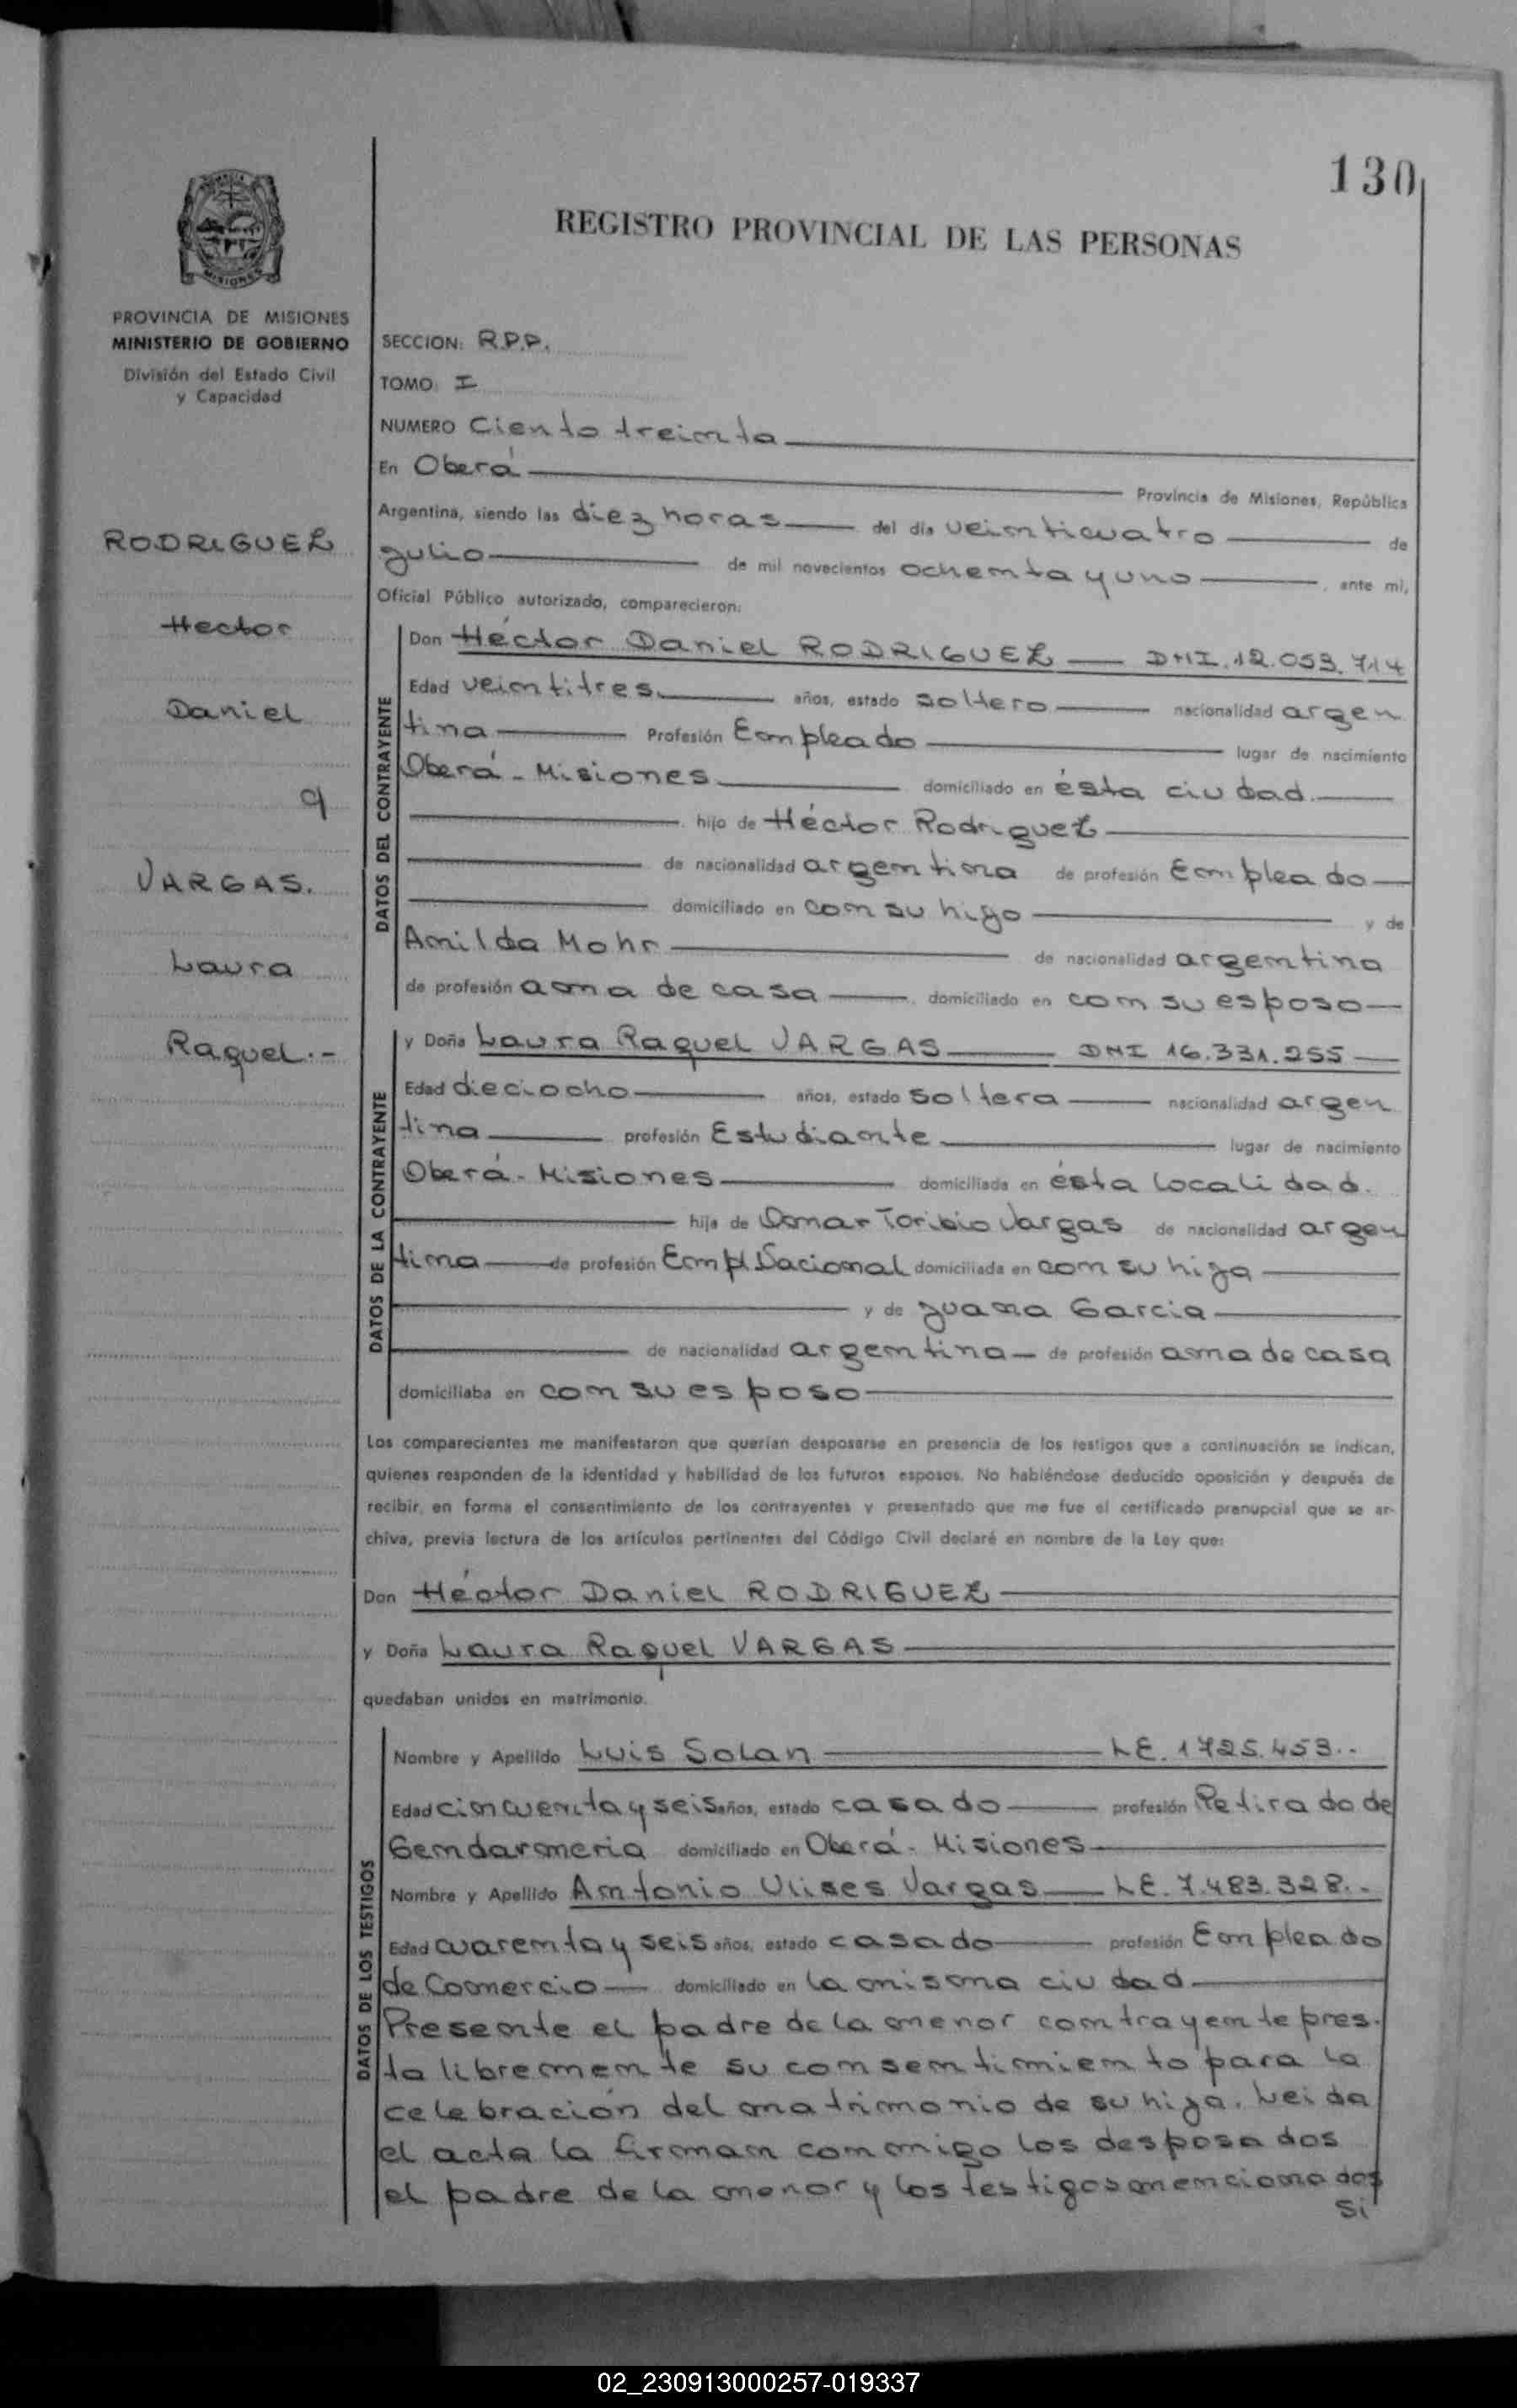 130
REGISTRO PROVINCIAL DE LAS PERSONAS
MISIONES
PROVINCIA DE MISIONES
MINISTERIO DE GOBIERNO
División del Estado Civil
y Capacidad
RODRIGUEZ
Hector
Daniel
y
VARGAS.
Laura
Raquel.-
SECCION: R.P.P.
TOMO: I
NUMERO Ciento treinta
En Oberá Provincia de Misiones, República
Argentina, siendo las diez horas del día veinticuatro de
julio de mil novecientos ochenta y uno, ante mí,
Oficial Público autorizado, comparecieron:
DATOS DEL CONTRAYENTE
Don Héctor Daniel RODRIGUEZ DNI. 12.053.714
Edad veintitres años, estado soltero nacionalidad argen
tina Profesión Empleado lugar de nacimiento
Oberá - Misiones domiciliado en ésta ciudad.
hijo de Héctor Rodriguez
de nacionalidad argentina de profesión Empleado
domiciliado en con su hijo y de
Amilda Mohr de nacionalidad argentina
de profesión ama de casa, domiciliado en con su esposo
DATOS DE LA CONTRAYENTE
y Doña Laura Raquel VARGAS DNI 16.331.255
Edad dieciocho años, estado soltera nacionalidad argen
tina profesión Estudiante lugar de nacimiento
Oberá - Misiones domiciliada en ésta localidad.
hija de Omar Toribio Vargas de nacionalidad argen
tina de profesión Empl Nacional domiciliada en con su hija
y de Juana Garcia
de nacionalidad argentina de profesión ama de casa
domiciliaba en con su esposo
Los comparecientes me manifestaron que querían desposarse en presencia de los testigos que a continuación se indican,
quienes responden de la identidad y habilidad de los futuros esposos. No habiéndose deducido oposición y después de
recibir en forma el consentimiento de los contrayentes y presentado que me fue el certificado prenupcial que se ar-
chiva, previa lectura de los artículos pertinentes del Código Civil declaré en nombre de la Ley que:
Don Héctor Daniel RODRIGUEZ
y Doña Laura Raquel VARGAS
quedaban unidos en matrimonio.
DATOS DE LOS TESTIGOS
Nombre y Apellido Luis Solan LE. 1725.453..
Edad cincuenta y seis años, estado casado profesión Retirado de
Gendarmeria domiciliado en Oberá - Misiones
Nombre y Apellido Antonio Ulises Vargas LE. 7.483.328..
Edad cuarenta y seis años, estado casado profesión Empleado
de Comercio domiciliado en la misma ciudad
Presente el padre de la menor contrayente pres-
ta libremente su consentimiento para la
celebración del matrimonio de su hija. Leida
el acta la firman conmigo los desposados
el padre de la menor y los testigos mencionados
Si
02_230913000257-019337